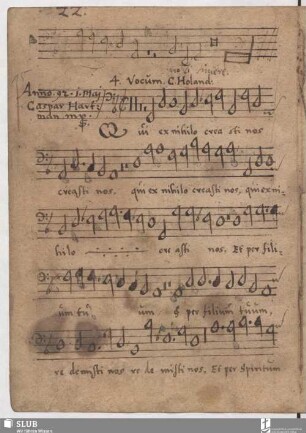 22.
4. Vocum. C. Holand.
Anno. 92. 1. Maij
Caspar Hart
man. mp.
Qui ex nihilo creasti nos
creasti nos. qui ex nihilo creasti nos, qui ex ni-
hilo creasti nos. Et per fili-
um tuum & per filium tuum,
redemisti nos redemisti nos. Et per Spiritum
SLUB
Wir führen Wissen.